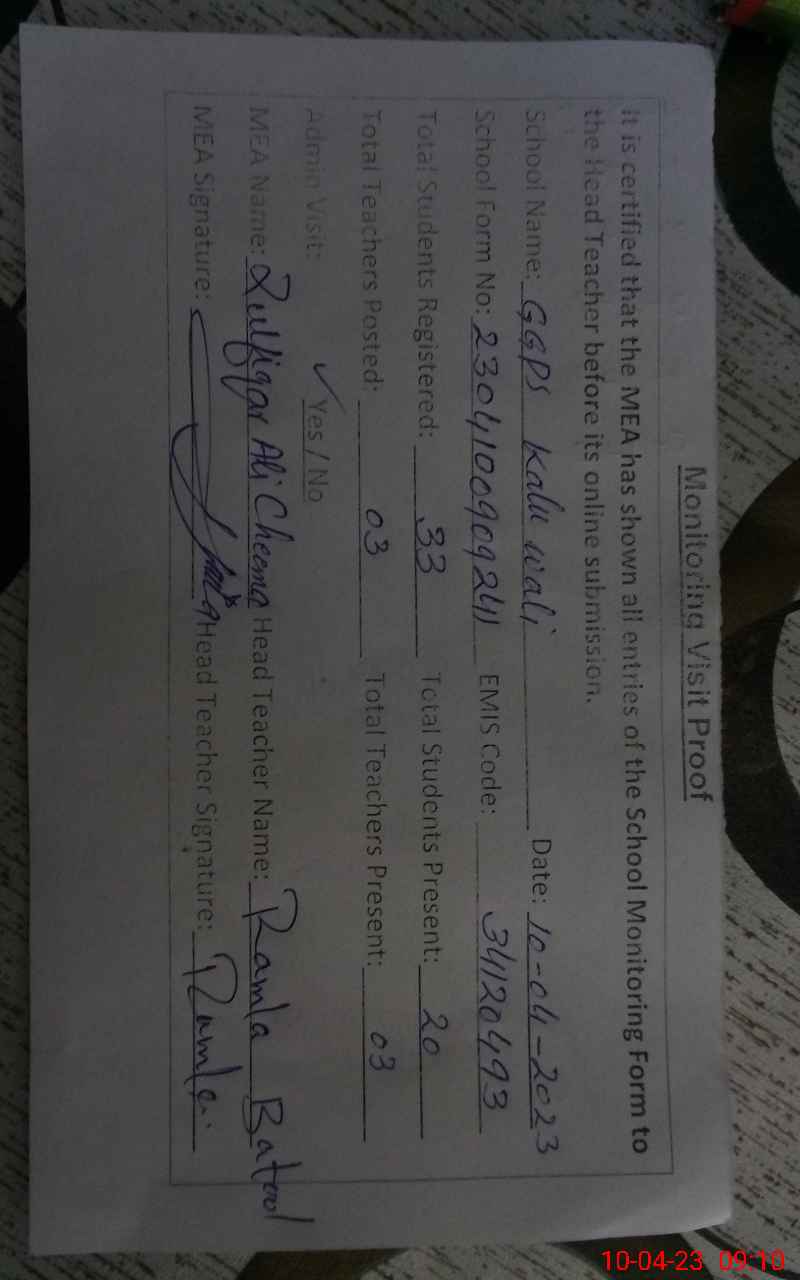 Monitoring Visit Proof
It is certified that the MEA has shown all entries of the School Monitoring Form to
the Head Teacher before its online submission.
School Name: GGPS Kalu wali Date: 10-04-2023
School Form No: 23041009092411 EMIS Code: 34120493
Total Students Registered: 33 Total Students Present: 20
Total Teachers Posted: 03 Total Teachers Present: 03
Admin Visit: ✓ Yes / No
MEA Name: Zulfiqar Ali Cheema Head Teacher Name: Ramla Batool
MEA Signature: Head Teacher Signature: Ramla
10-04-23 09:10